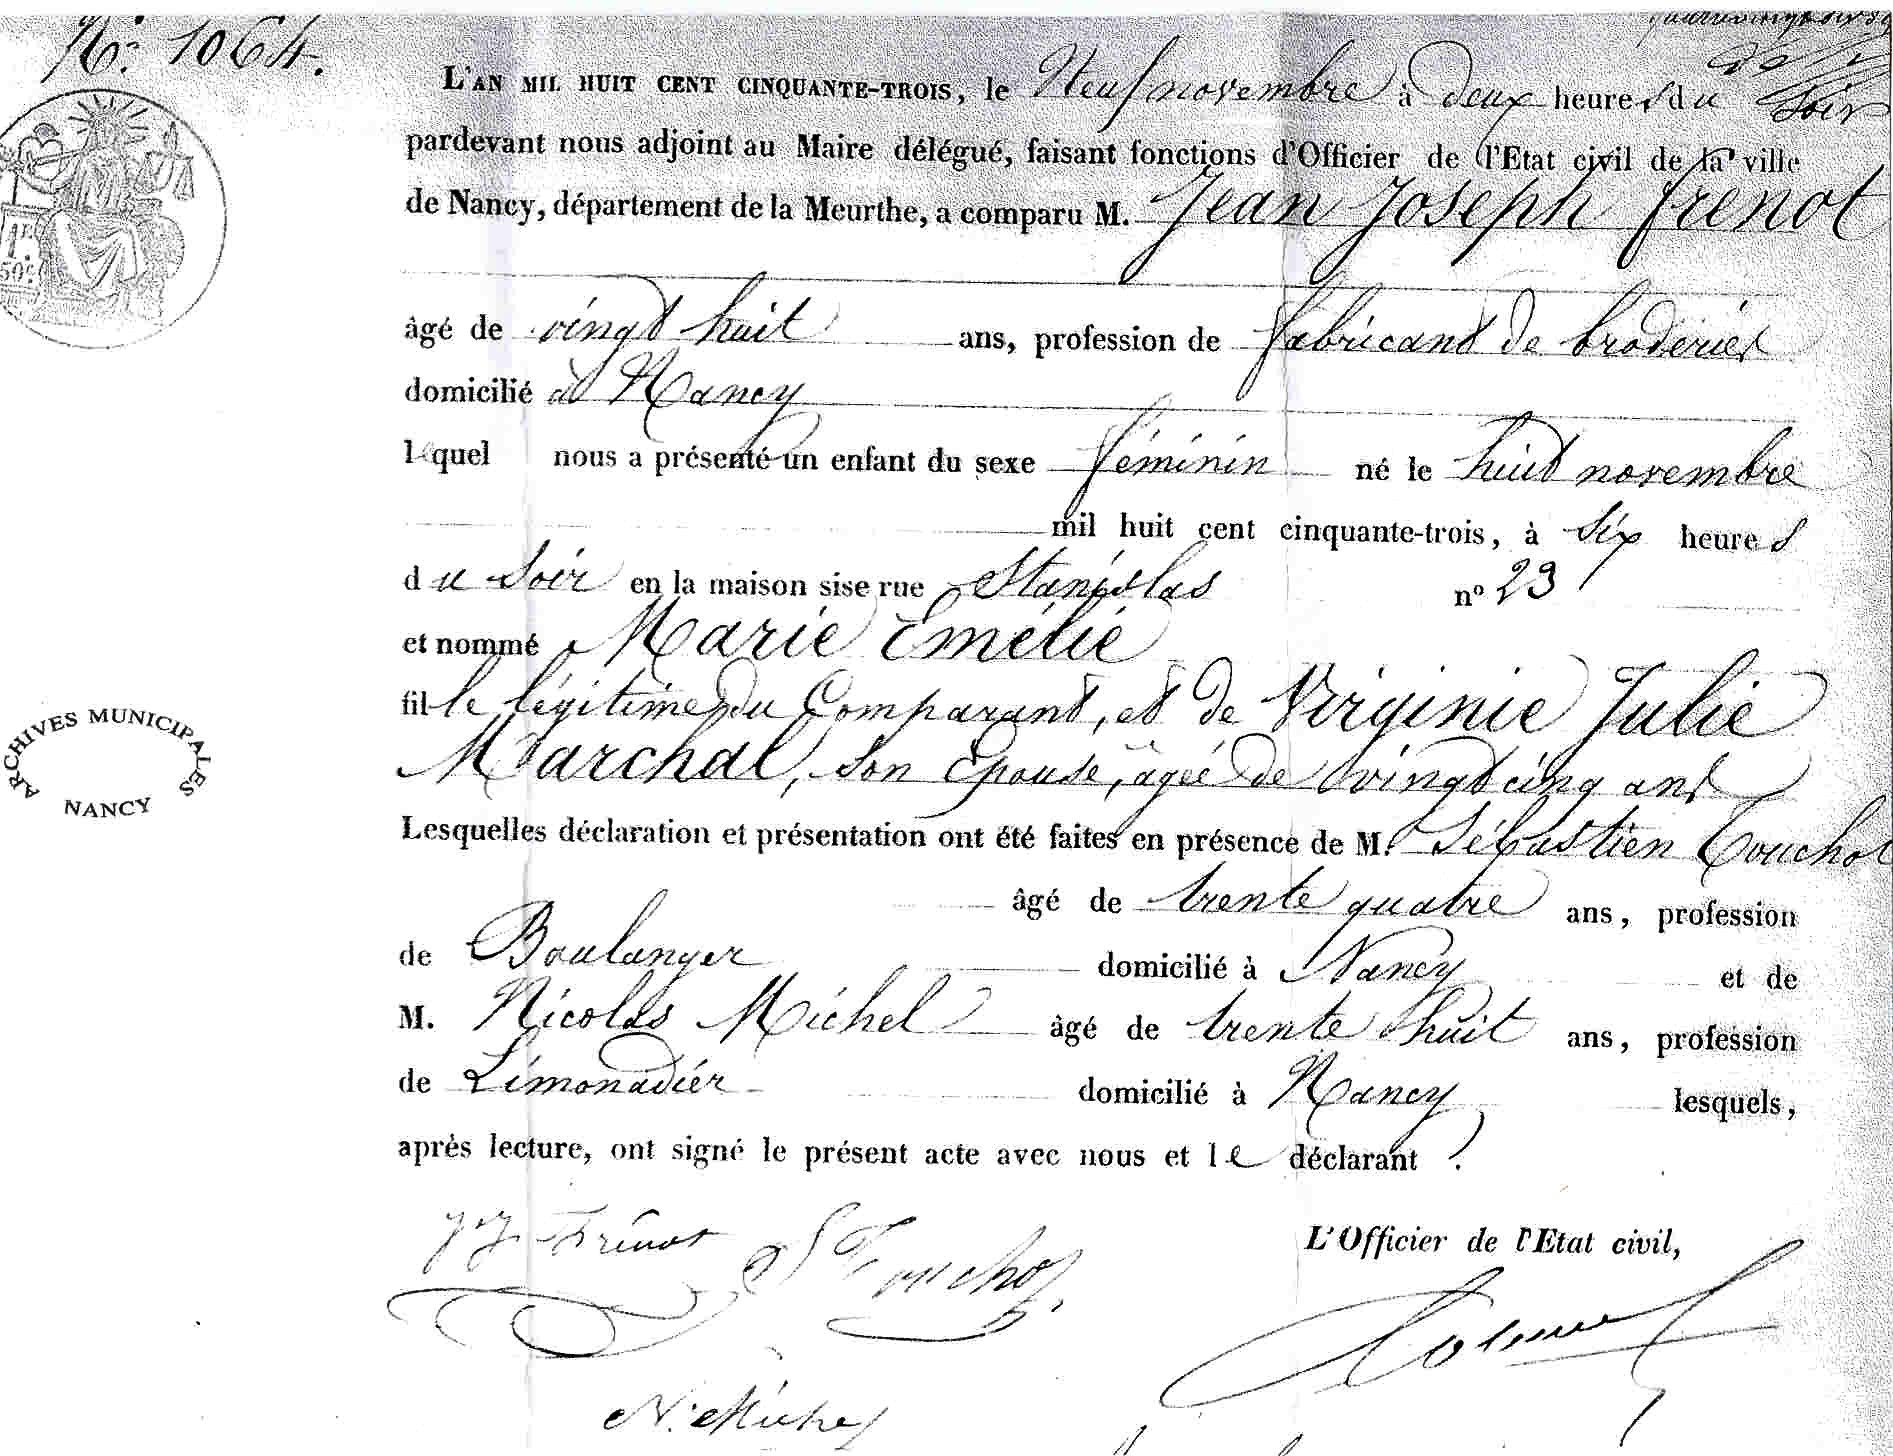 No. 1064.
L'AN MIL HUIT CENT CINQUANTE-TROIS, le Neuf novembre à deux heures du soir
pardevant nous adjoint au Maire délégué, faisant fonctions d'Officier de l'Etat civil de la ville
de Nancy, département de la Meurthe, a comparu M. Jean Joseph frenot
âgé de vingt huit ans, profession de fabricant de broderies
domicilié à Nancy
lequel nous a présenté un enfant du sexe féminin né le huit novembre
mil huit cent cinquante-trois, à six heures
du soir en la maison sise rue Stanislas no 23
et nommé Marie Emélie
fille légitime du Comparant, et de Virginie Julie
Marchal, son Epouse, agée de vingt cinq ans
Lesquelles déclaration et présentation ont été faites en présence de M. Sébastien Touchot
âgé de trente quatre ans, profession
de Boulanger domicilié à Nancy et de
M. Nicolas Michel âgé de trente huit ans, profession
de Limonadier domicilié à Nancy lesquels,
après lecture, ont signé le présent acte avec nous et le déclarant.
1F
50c
ARCHIVES MUNICIPALES
NANCY
JJ Frénot S Touchot
L'Officier de l'Etat civil,
N. Michel